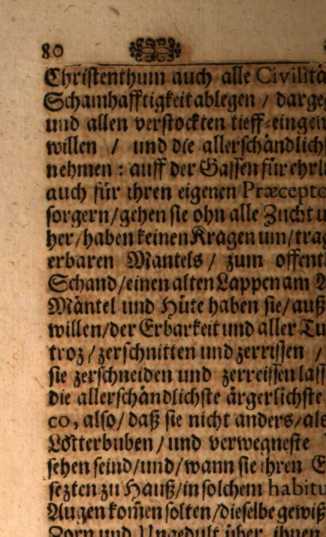 80
Christenthum auch alle Civilitä
Schamhafftigkeit ablegen / darge
und allen verstockten tieff-eingew
willen / und die allerschändlichs
nehmen: auff der Gassen für ehrli
auch für ihren eigenen Præcepto
sorgern / gehen sie ohn alle Zucht u
her / haben keinen Kragen um / tra
erbaren Mantels / zum offent
Schand / einen alten Lappen am A
Mäntel und Hüte haben sie / auß
willen / der Erbarkeit und aller Tu
troz / zerschnitten und zerrissen /
sie zerschneiden und zerreissen lass
die allerschändlichste ärgerlichste
co, also / daß sie nicht anders / als
Lotterbuben / und verwegneste
sehen seind / und / wann sie ihren E
sezten zu Hauß / in solchem habitu
Augen kom̃en solten / dieselbe gewiß
Zorn und Ungedult über ihnen